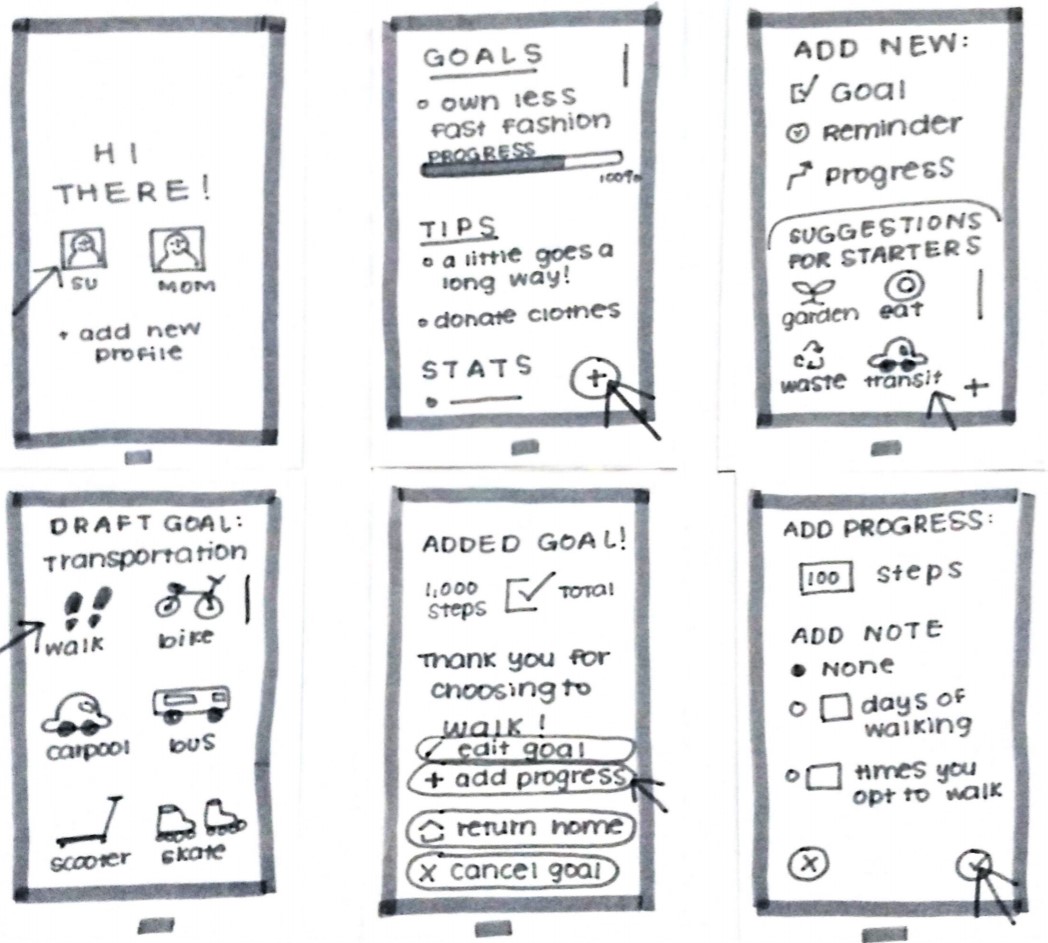 HI
THERE!
SU MOM
+ add new
profile
GOALS
• own less
fast fashion
PROGRESS
100%
TIPS
• a little goes a
long way!
• donate clothes
STATS
+
ADD NEW:
Goal
Reminder
progress
SUGGESTIONS
FOR STARTERS
garden eat
waste transit +
DRAFT GOAL:
Transportation
walk bike
carpool bus
scooter skate
ADDED GOAL!
1,000
steps TOTAL
Thank you for
choosing to
walk!
edit goal
+ add progress
return home
x cancel goal
ADD PROGRESS:
100 steps
ADD NOTE
None
days of
walking
times you
opt to walk
X